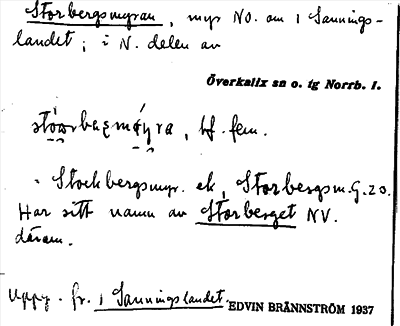 Storbergsmyran, myr NO. om 1 Sannings-
landet; i N. delen av
Överkalix sn o. tg Norrb. l.
bf. fem.
Stockbergsmyr. ek, Storbergsm. G. 20.
Har sitt namn av Storberget NV.
därom.
Uppg. fr. 1 Sanningslandet.
EDVIN BRÄNNSTRÖM 1937